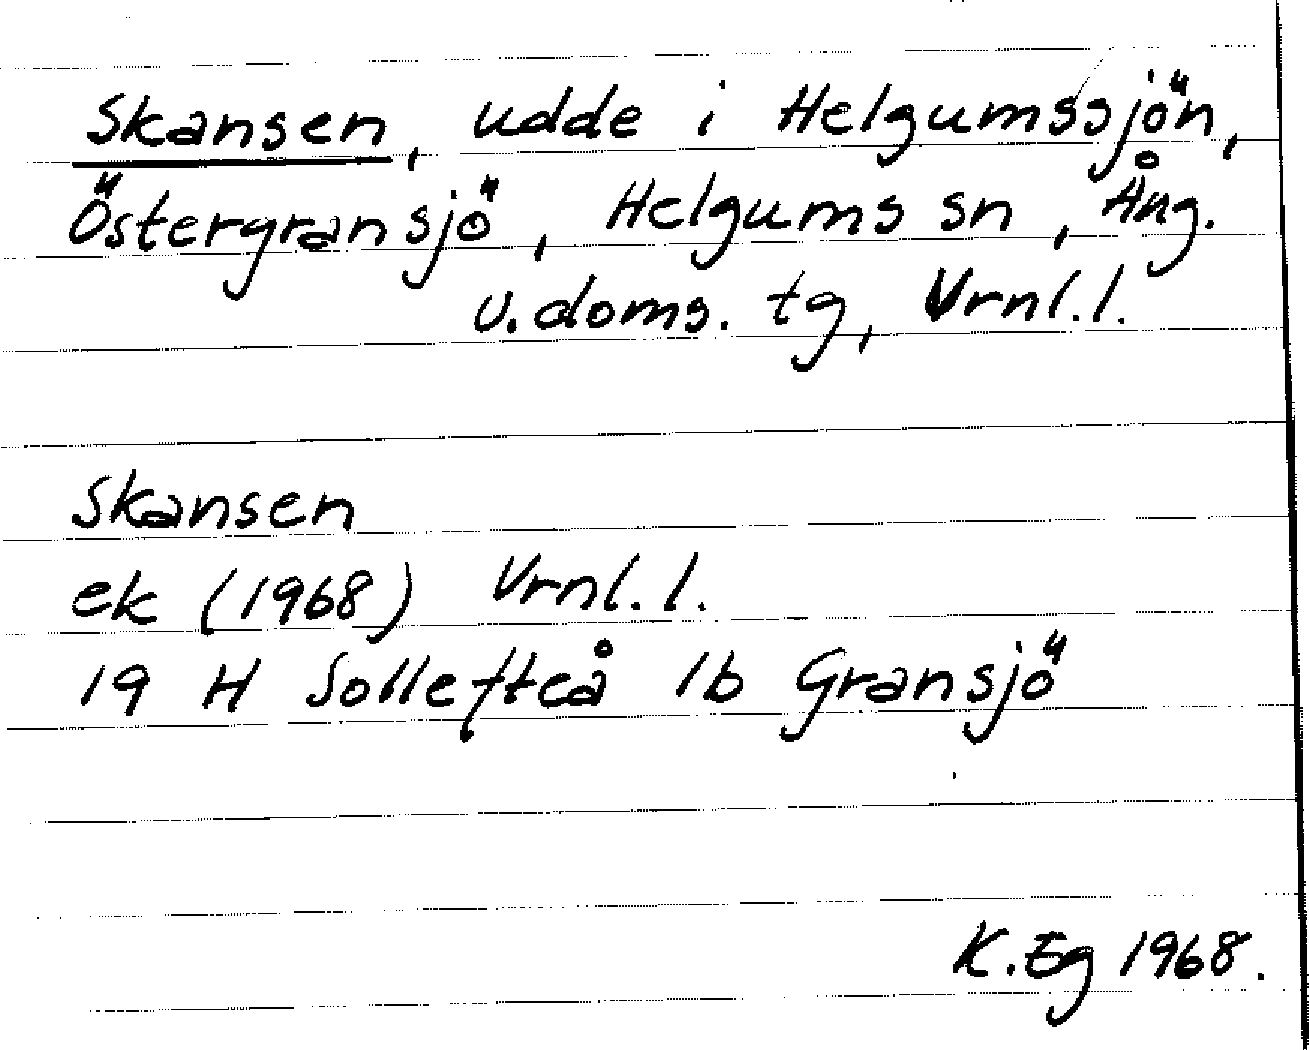 Skansen, udde i Helgumssjön,
Östergransjö, Helgums sn, Ång.
v. doms. tg, Vrnl. l.
Skansen
ek (1968) Vrnl. l.
19 H Sollefteå 1b Gransjö
K. Eg 1968.